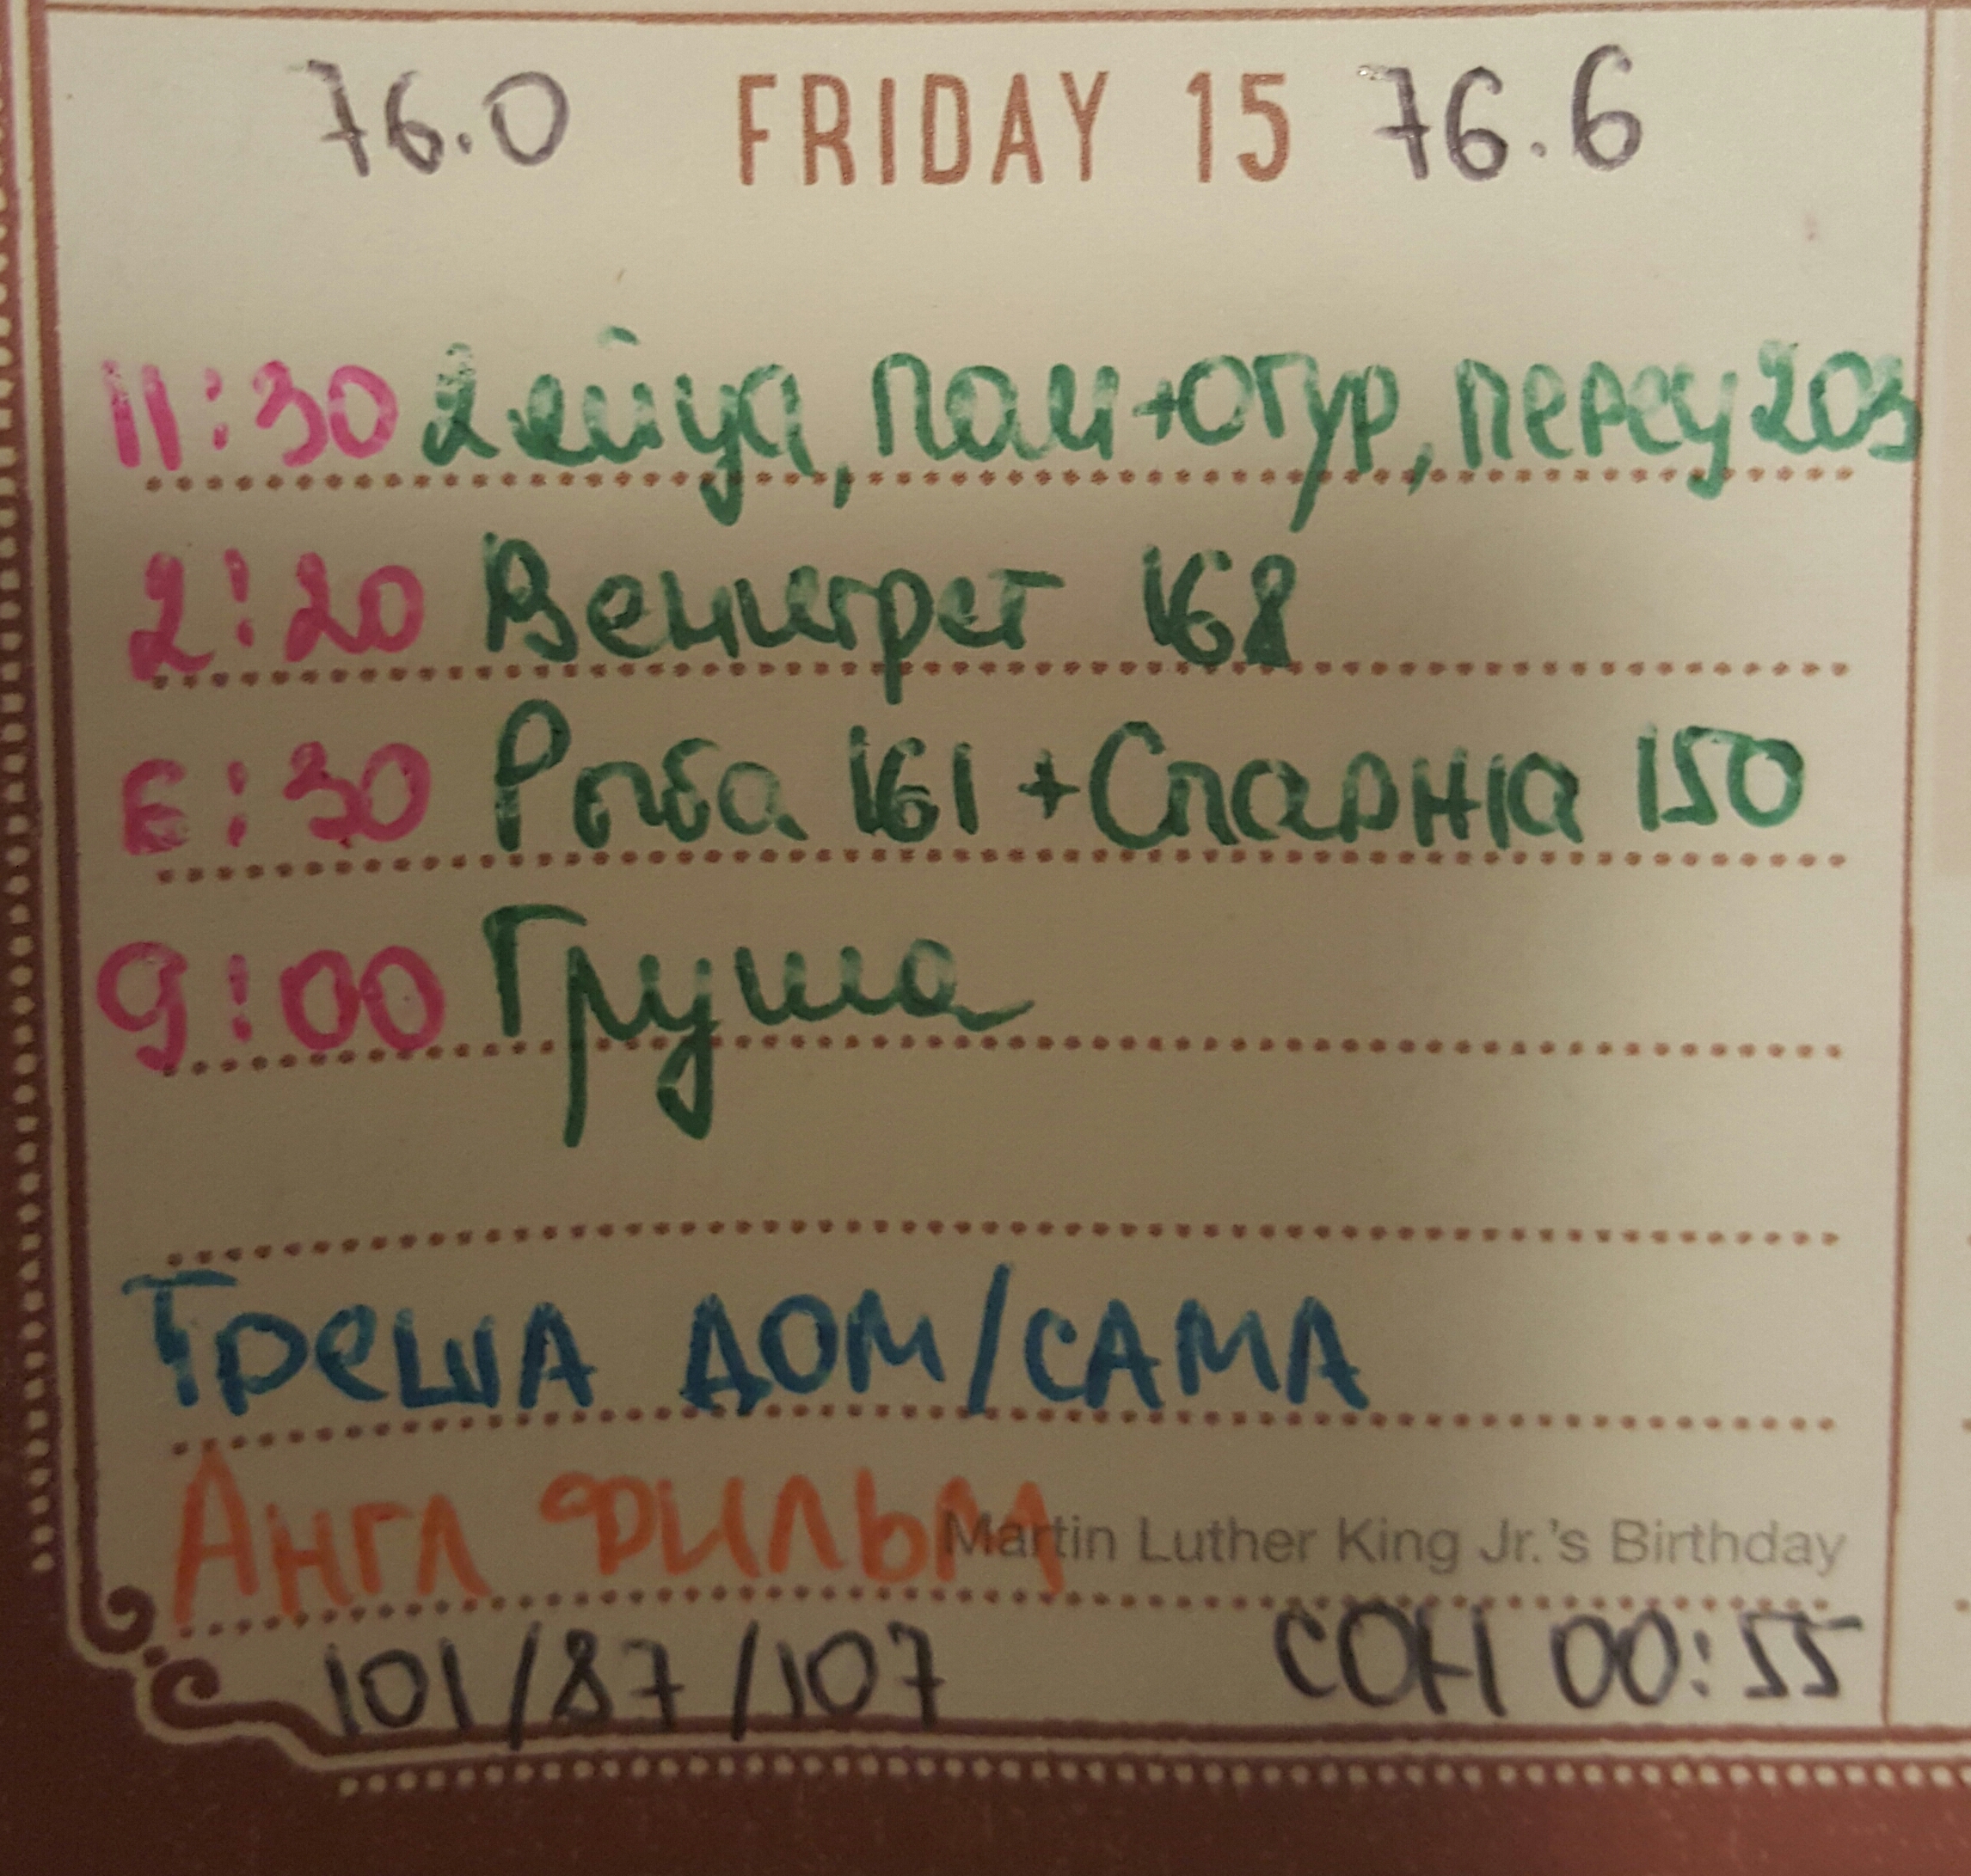 76.0 FRIDAY 15 76.6
11:30 2 яйца, пом+огур, перец 203
2:20 Венигрет 168
6:30 Рыба 161 + Спаржа 150
9:00 Груша
Треша ДОМ/САМА
Англ ФИЛЬМ
Martin Luther King Jr.'s Birthday
101/87/107 СОН 00:55